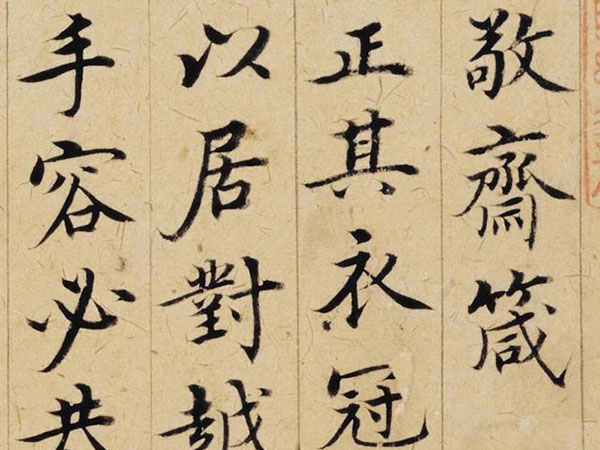 敬齋箴
正其衣冠
以居對越
手容必共